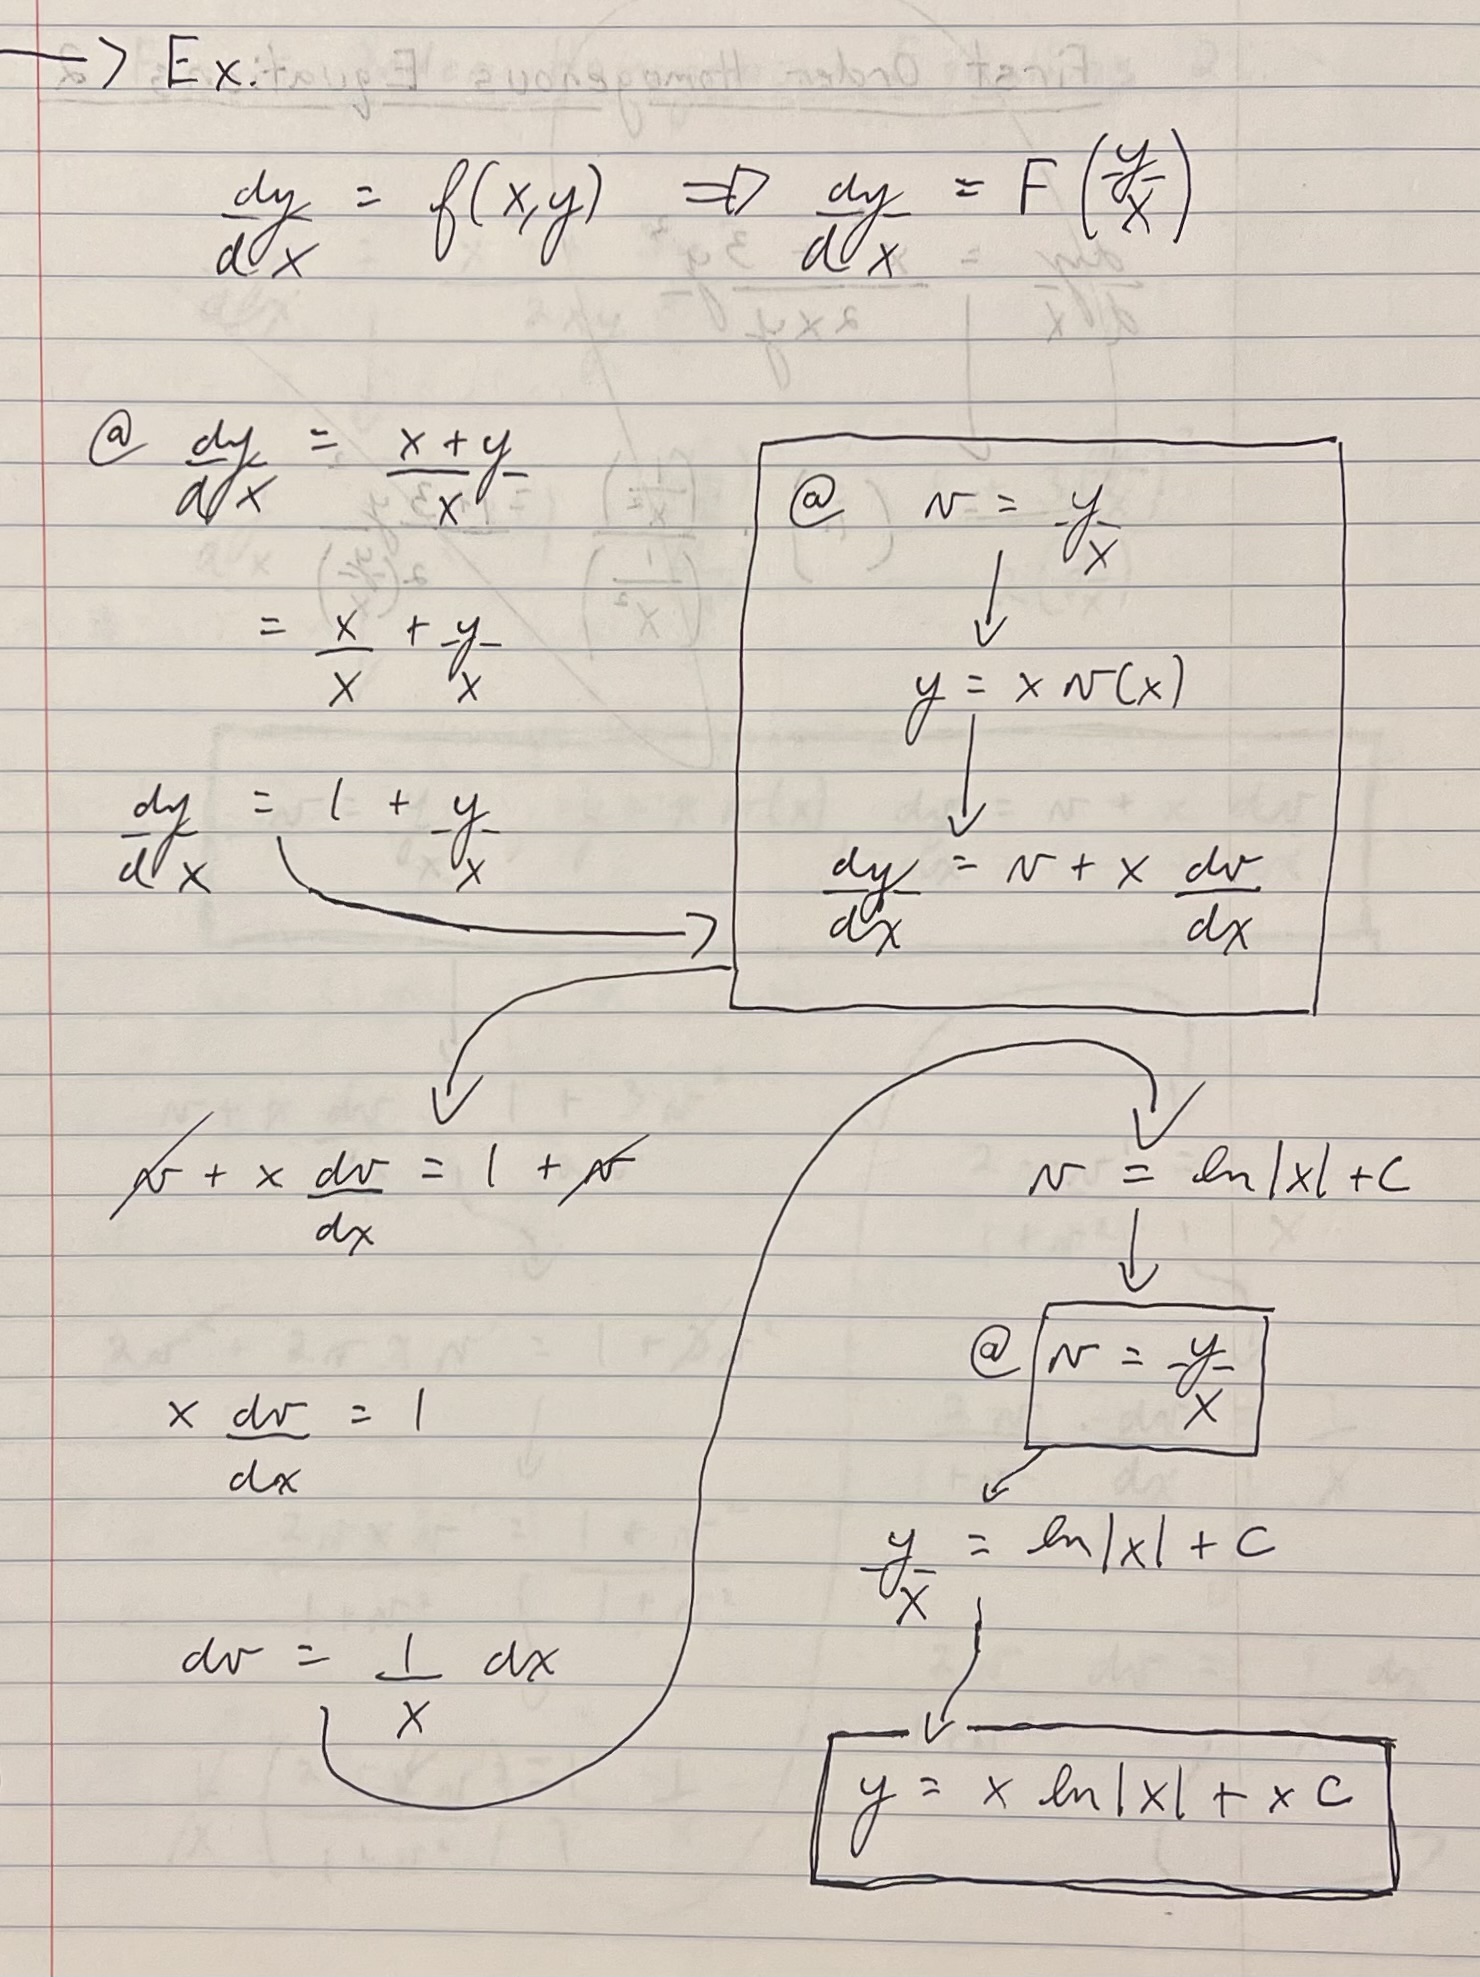 → Ex.
dy/dx = f(x,y) ⇒ dy/dx = F(y/x)
@ dy/dx = (x+y)/x
= x/x + y/x
dy/dx = 1 + y/x
@ v = y/x
y = x v(x)
dy/dx = v + x dv/dx
v + x dv/dx = 1 + v
x dv/dx = 1
dv = 1/x dx
v = ln|x| + C
@ v = y/x
y/x = ln|x| + C
y = x ln|x| + x C